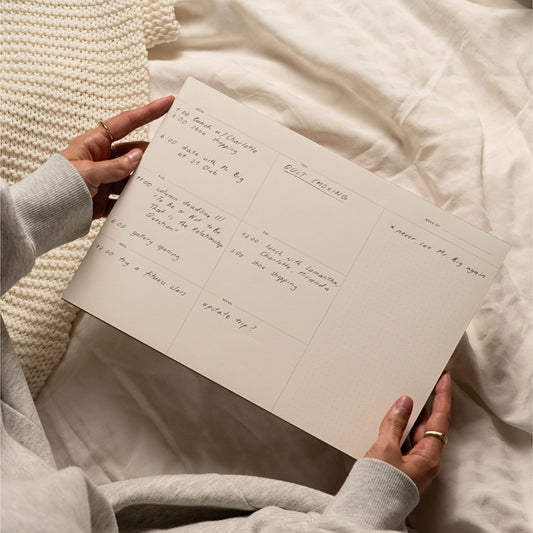 MON
1:00 lunch w/ Charlotte
3:00 shoe shopping
6:00 date with Mr. Big
at 21 Club
TUE
10:00 column deadline !!!
"To Be or Not to Be
That is the Relationship
Question"
6:00 gallery opening
WED
12:00 try a fitness class
THU
QUIT SMOKING
FRI
12:00 lunch with Samantha,
Charlotte, Miranda
3:00 shoe shopping
upstate trip?
WEEK OF
* never see Mr. Big again